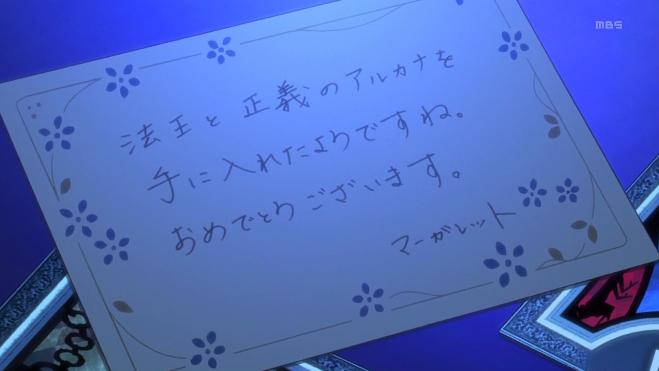 MBS
法王と正義のアルカナを
手に入れたようですね。
おめでとうございます。
マーガレット